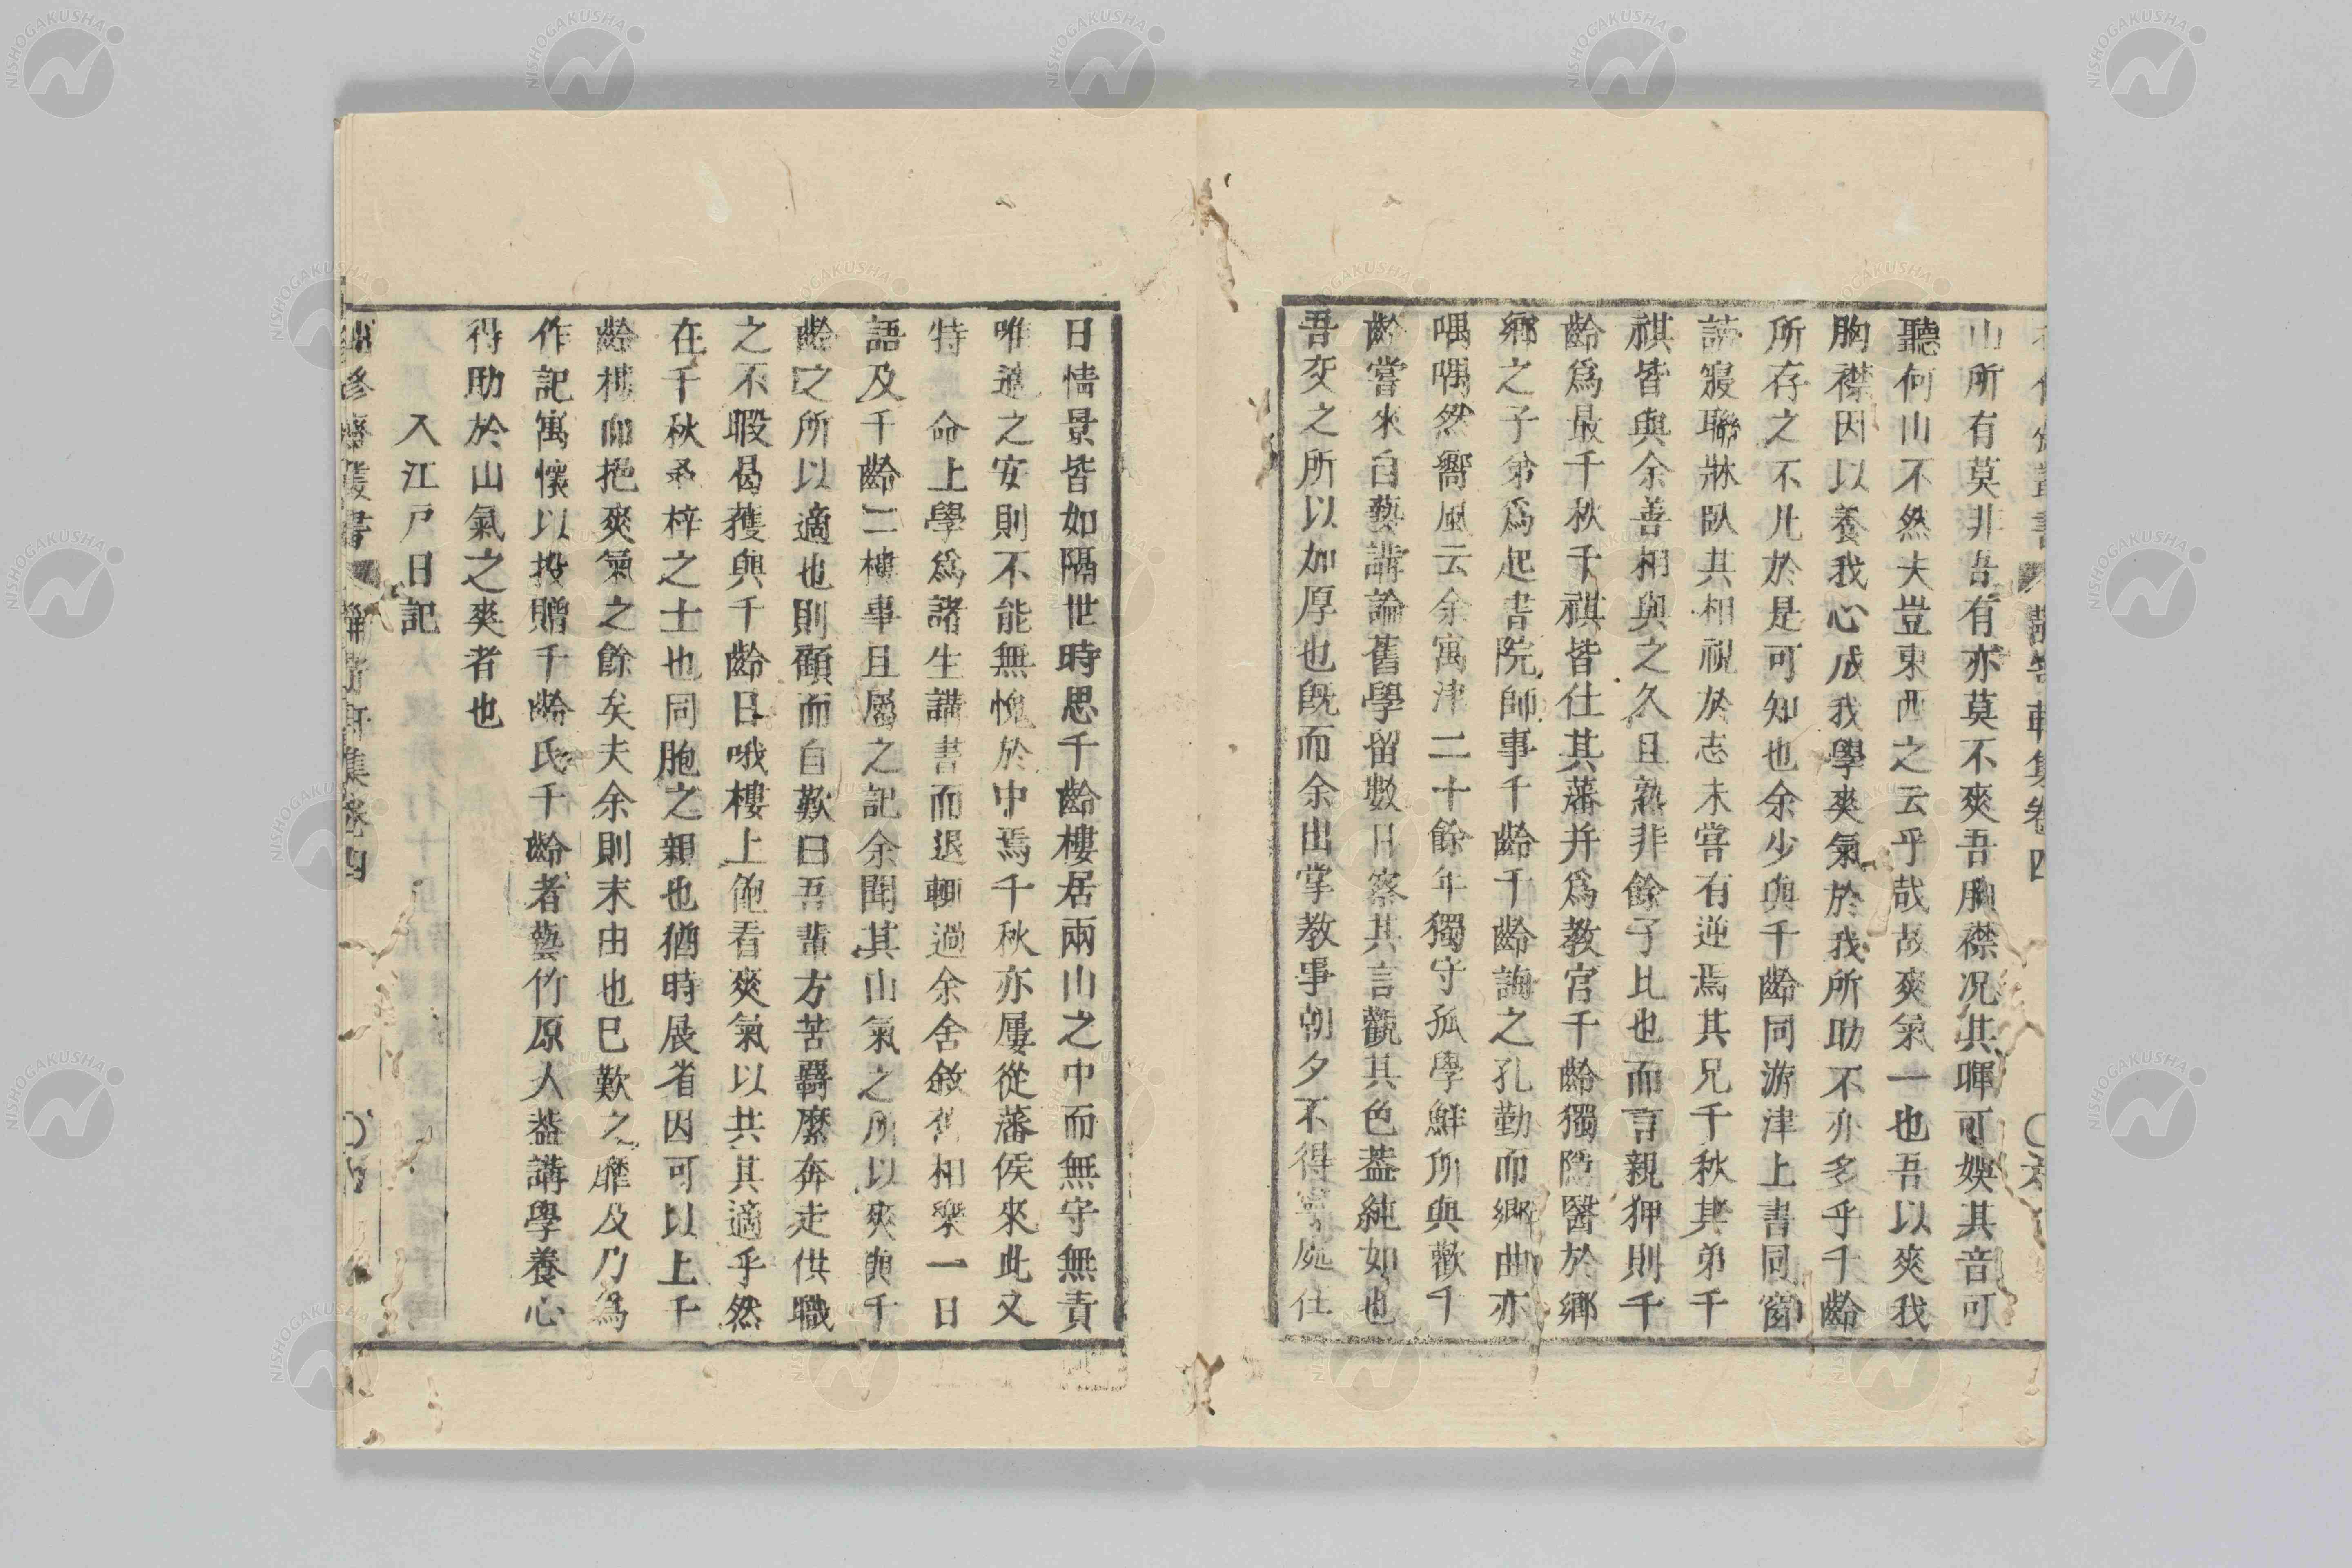 山所有莫非吾有亦莫不爽吾胸襟况其暉可娛其音可
聽何山不然夫豈東西之云乎哉故爽氣一也吾以爽我
胸襟因以養我心成我學爽氣於我所助不亦多乎千齡
所存之不凡於是可知也余少與千齡同游津上書同窗
讀寢聯牀臥其相視於志未嘗有逆焉其兄千秋其弟千
祺皆與余善相與之久且熟非餘子比也而言親狎則千
齡爲最千秋千祺皆仕其藩并爲教官千齡獨隱醫於鄉
鄉之子弟爲起書院師事千齡千齡誨之孔勤而鄉曲亦
喁喁然嚮風云余寓津二十餘年獨守孤學鮮所與歡千
齡嘗來自藝講論舊學留數日察其言觀其色葢純如也
吾交之所以加厚也既而余出掌教事朝夕不得寧處仕
日情景皆如隔世時思千齡樓居兩山之中而無守無責
唯進之安則不能無愧於中焉千秋亦屢從藩侯來此又
特 命上學爲諸生講書而退輒過余舍敘舊相樂一日
語及千齡二樓事且屬之記余聞其山氣之所以爽與千
齡之所以適也則顧而自歎曰吾輩方苦羇縻奔走供職
之不暇曷獲與千齡日哦樓上飽看爽氣以共其適乎然
在千秋桑梓之士也同胞之親也猶時展省因可以上千
齡樓而挹爽氣之餘矣夫余則末由也已歎之靡及乃爲
作記寓懷以投贈千齡氏千齡者藝竹原人葢講學養心
得助於山氣之爽者也
入江戸日記
集卷四